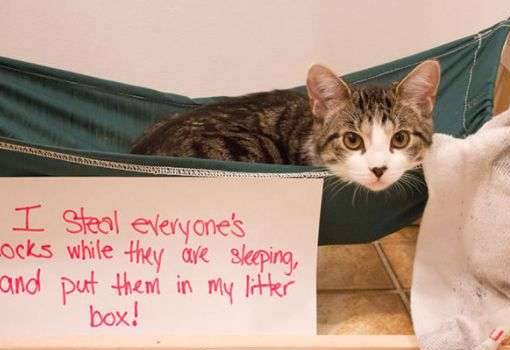 I Steal everyone's
ocks while they are sleeping,
and put them in my litter
box!